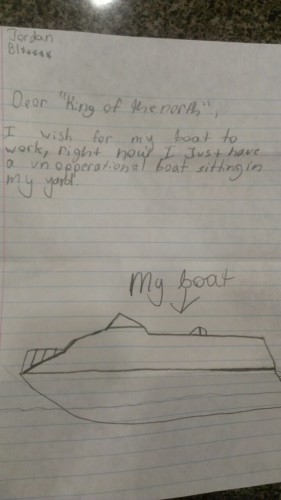 Jordan
Dear "King of the north",
I wish for my boat to
work, right now I Just have
a un opperational boat sitting in
my yard.
My boat